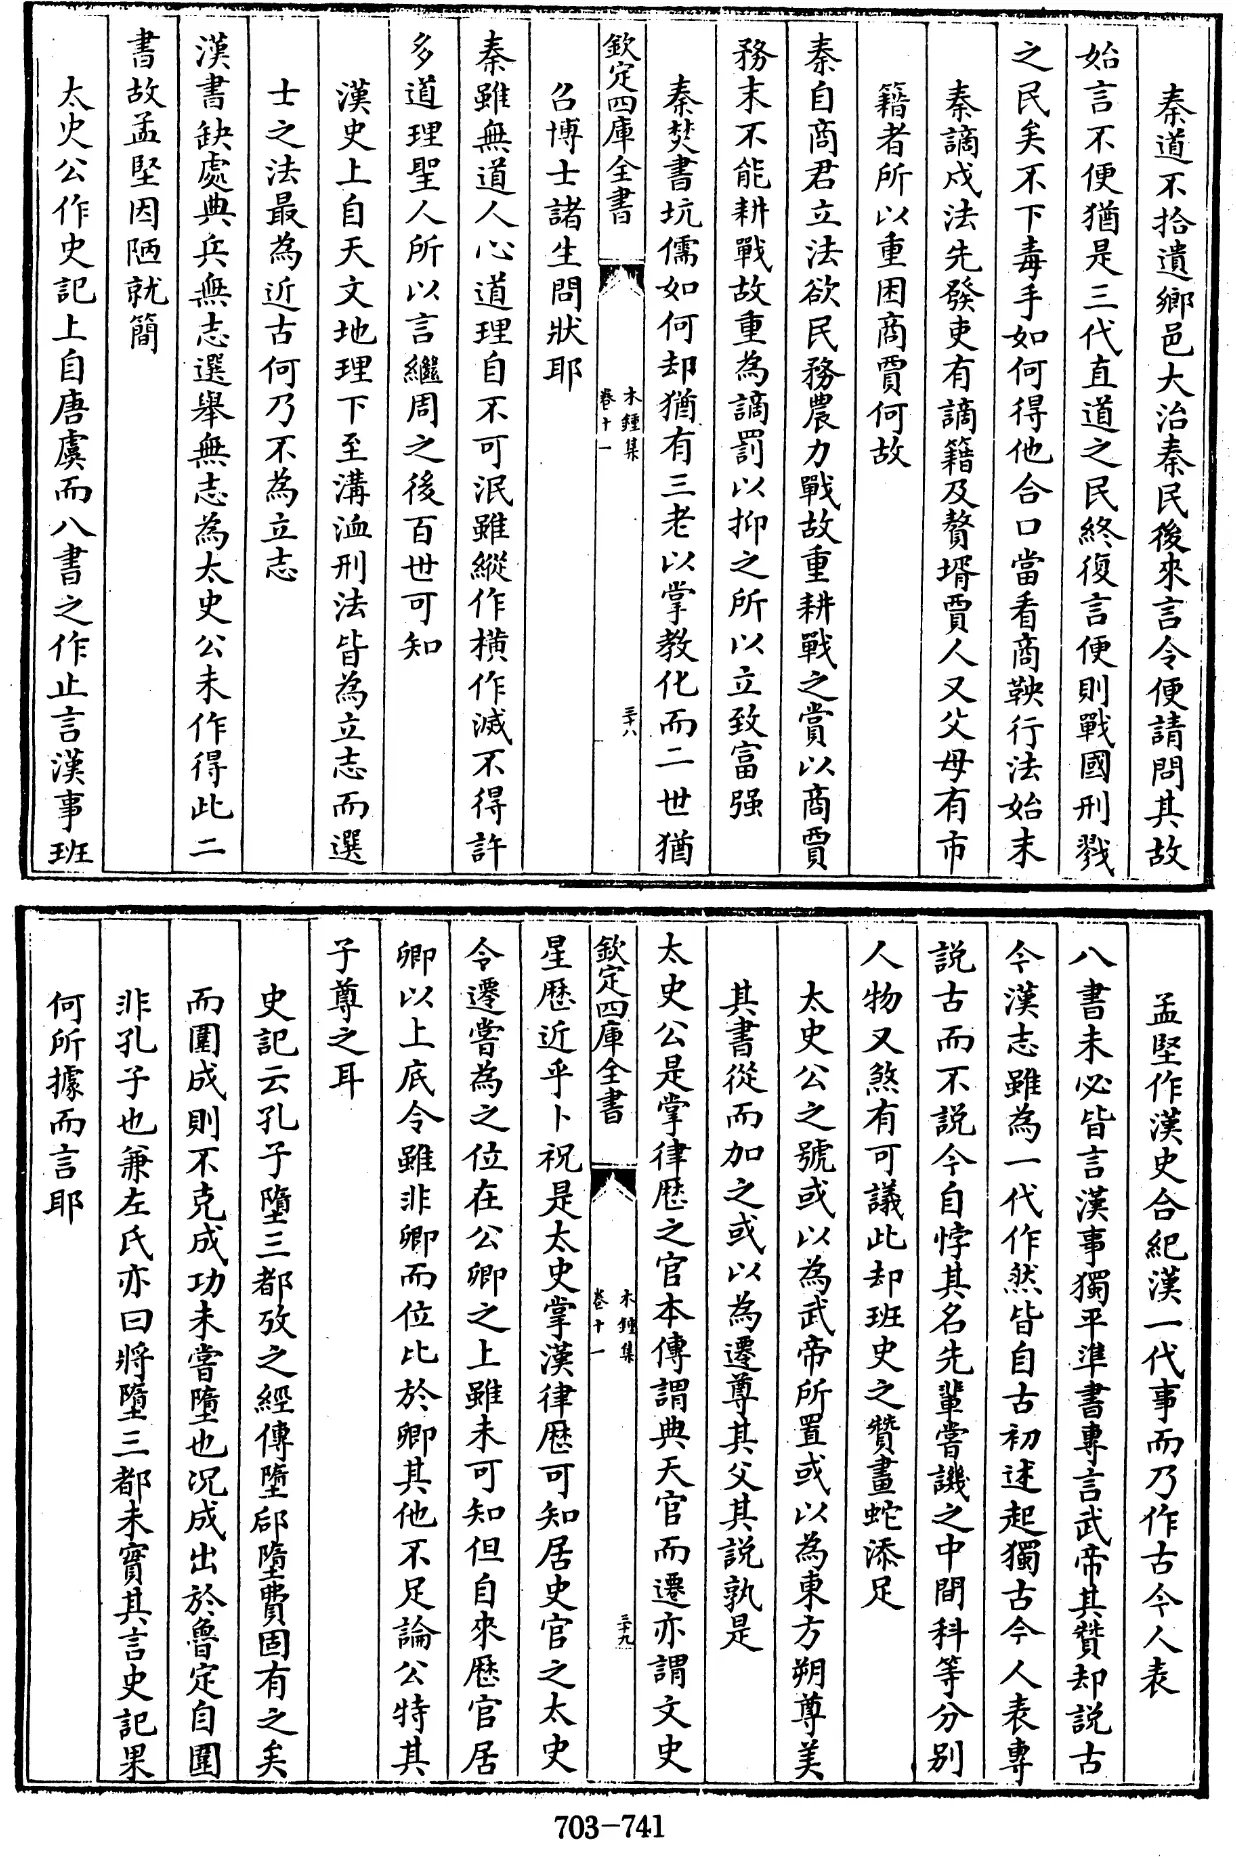 秦道不拾遺鄉邑大治秦民後來言令便請問其故
始言不便猶是三代直道之民終復言便則戰國刑戮
之民矣不下毒手如何得他合口當看商鞅行法始末
秦謫戍法先發吏有謫籍及贅壻賈人又父母有市
籍者所以重困商賈何故
秦自商君立法欲民務農力戰故重耕戰之賞以商賈
務末不能耕戰故重為謫罰以抑之所以立致富强
秦焚書坑儒如何却猶有三老以掌教化而二世猶
欽定四庫全書
木鍾集
卷十一
三十八
召博士諸生問狀耶
秦雖無道人心道理自不可泯雖縱作横作滅不得許
多道理聖人所以言繼周之後百世可知
漢史上自天文地理下至溝洫刑法皆為立志而選
士之法最為近古何乃不為立志
漢書缺處典兵無志選舉無志為太史公未作得此二
書故孟堅因陋就簡
太史公作史記上自唐虞而八書之作止言漢事班
孟堅作漢史合紀漢一代事而乃作古今人表
八書未必皆言漢事獨平準書專言武帝其贊却説古
今漢志雖為一代作然皆自古初述起獨古今人表專
説古而不説今自悖其名先輩嘗譏之中間科等分别
人物又煞有可議此却班史之贊畫蛇添足
太史公之號或以為武帝所置或以為東方朔尊美
其書從而加之或以為遷尊其父其説孰是
太史公是掌律厯之官本傳謂典天官而遷亦謂文史
欽定四庫全書
木鍾集
卷十一
三十九
星厯近乎卜祝是太史掌漢律厯可知居史官之太史
令遷嘗為之位在公卿之上雖未可知但自來厯官居
卿以上底令雖非卿而位比於卿其他不足論公特其
子尊之耳
史記云孔子墮三都攷之經傳墮郈墮費固有之矣
而圍成則不克成功未嘗墮也況成出於魯定自圍
非孔子也兼左氏亦曰將墮三都未實其言史記果
何所據而言耶
703-741